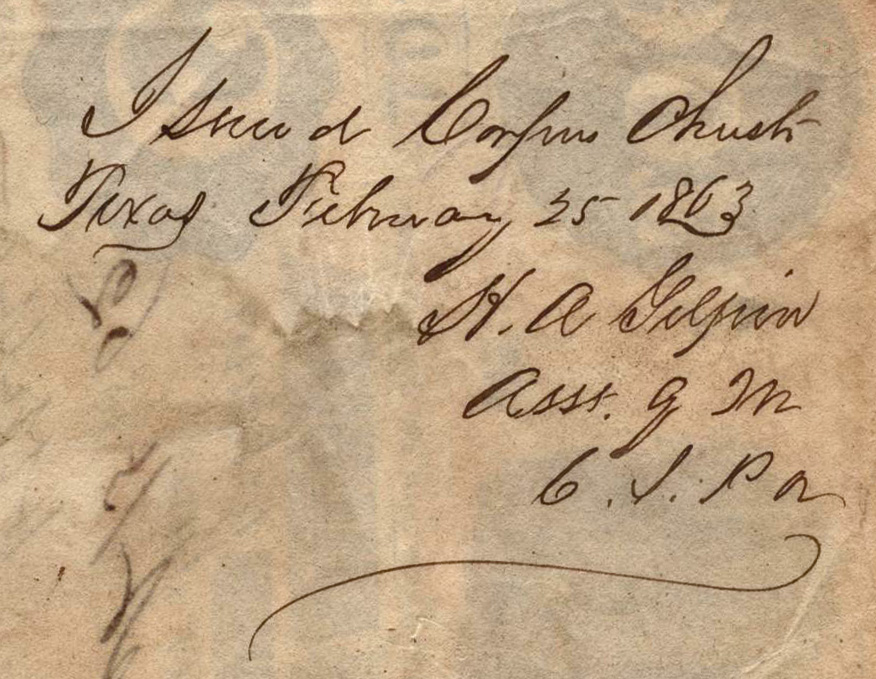 Issued Corpus Christi
Texas February 25 1863
H. A Gilpin
Asst. Q M
C. S. P a